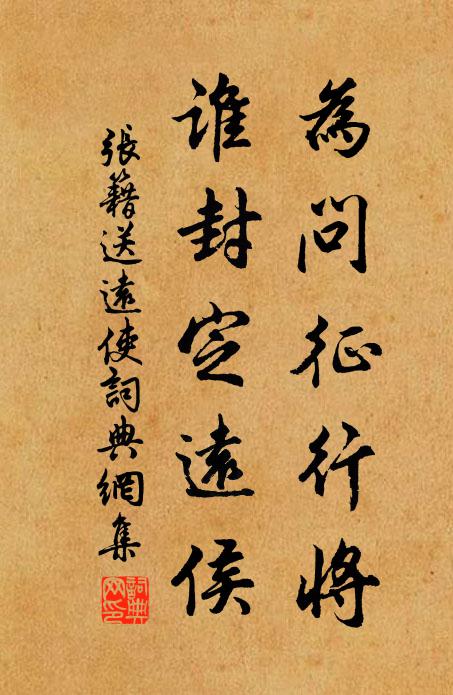 為問征行將
誰封定遠侯
張籍送遠使詞典網集
詞典網印